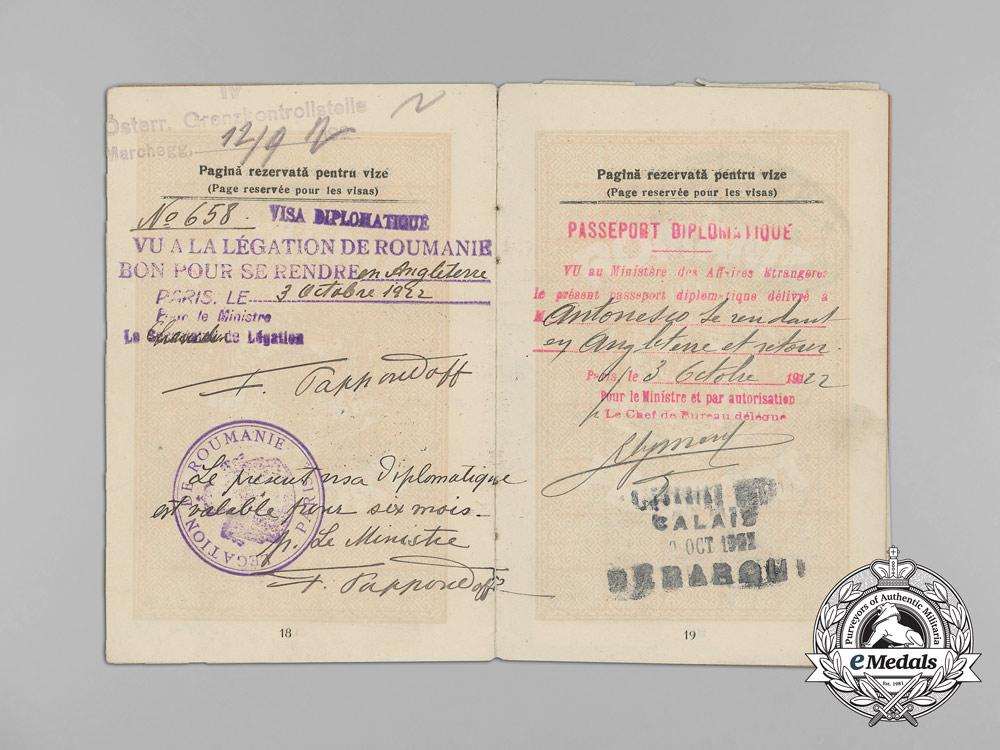 IV
Österr. Grenzkontrollstelle
Marchegg, 12/9
Pagină rezervată pentru vize
(Page reservée pour les visas)
No 658. VISA DIPLOMATIQUE
VU A LA LÉGATION DE ROUMANIE
BON POUR SE RENDRE en Angleterre
PARIS, LE 3 Octobre 1922
Pour le Ministre
La de Légation
LÉGATION DE ROUMANIE PARIS
Le présent visa diplomatique
est valable pour six mois.
p. Le Ministre
18
Pagină rezervată pentru vize
(Page reservée pour les visas)
PASSEPORT DIPLOMATIQUE
VU au Ministère des Affaires Etrangères
le présent passeport diplomatique délivré à
M. Antonesco se rendant
en Angleterre et retour.
Paris, le 3 Octobre 1922
Pour le Ministre et par autorisation
Le Chef de Bureau délégué
CALAIS
OCT
DEBARQUÉ
19
Purveyors of Authentic Militaria
eMedals
Est. 1981